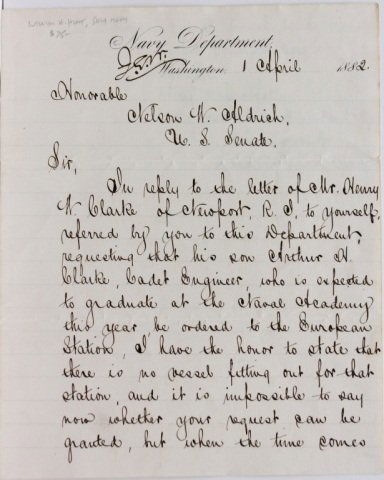 Navy Department,
Washington, 1 April 1882.
Honorable
Nelson W. Aldrich,
U. S. Senate.
Sir,
In reply to the letter of Mr. Henry
W. Clarke of Newport, R. I. to yourself,
referred by you to this Department,
requesting that his son Arthur H.
Clarke, Cadet Engineer, who is expected
to graduate at the Naval Academy
this year be ordered to the European
Station, I have the honor to state that
there is no vessel fitting out for that
station, and it is impossible to say
now whether your request can be
granted, but when the time comes